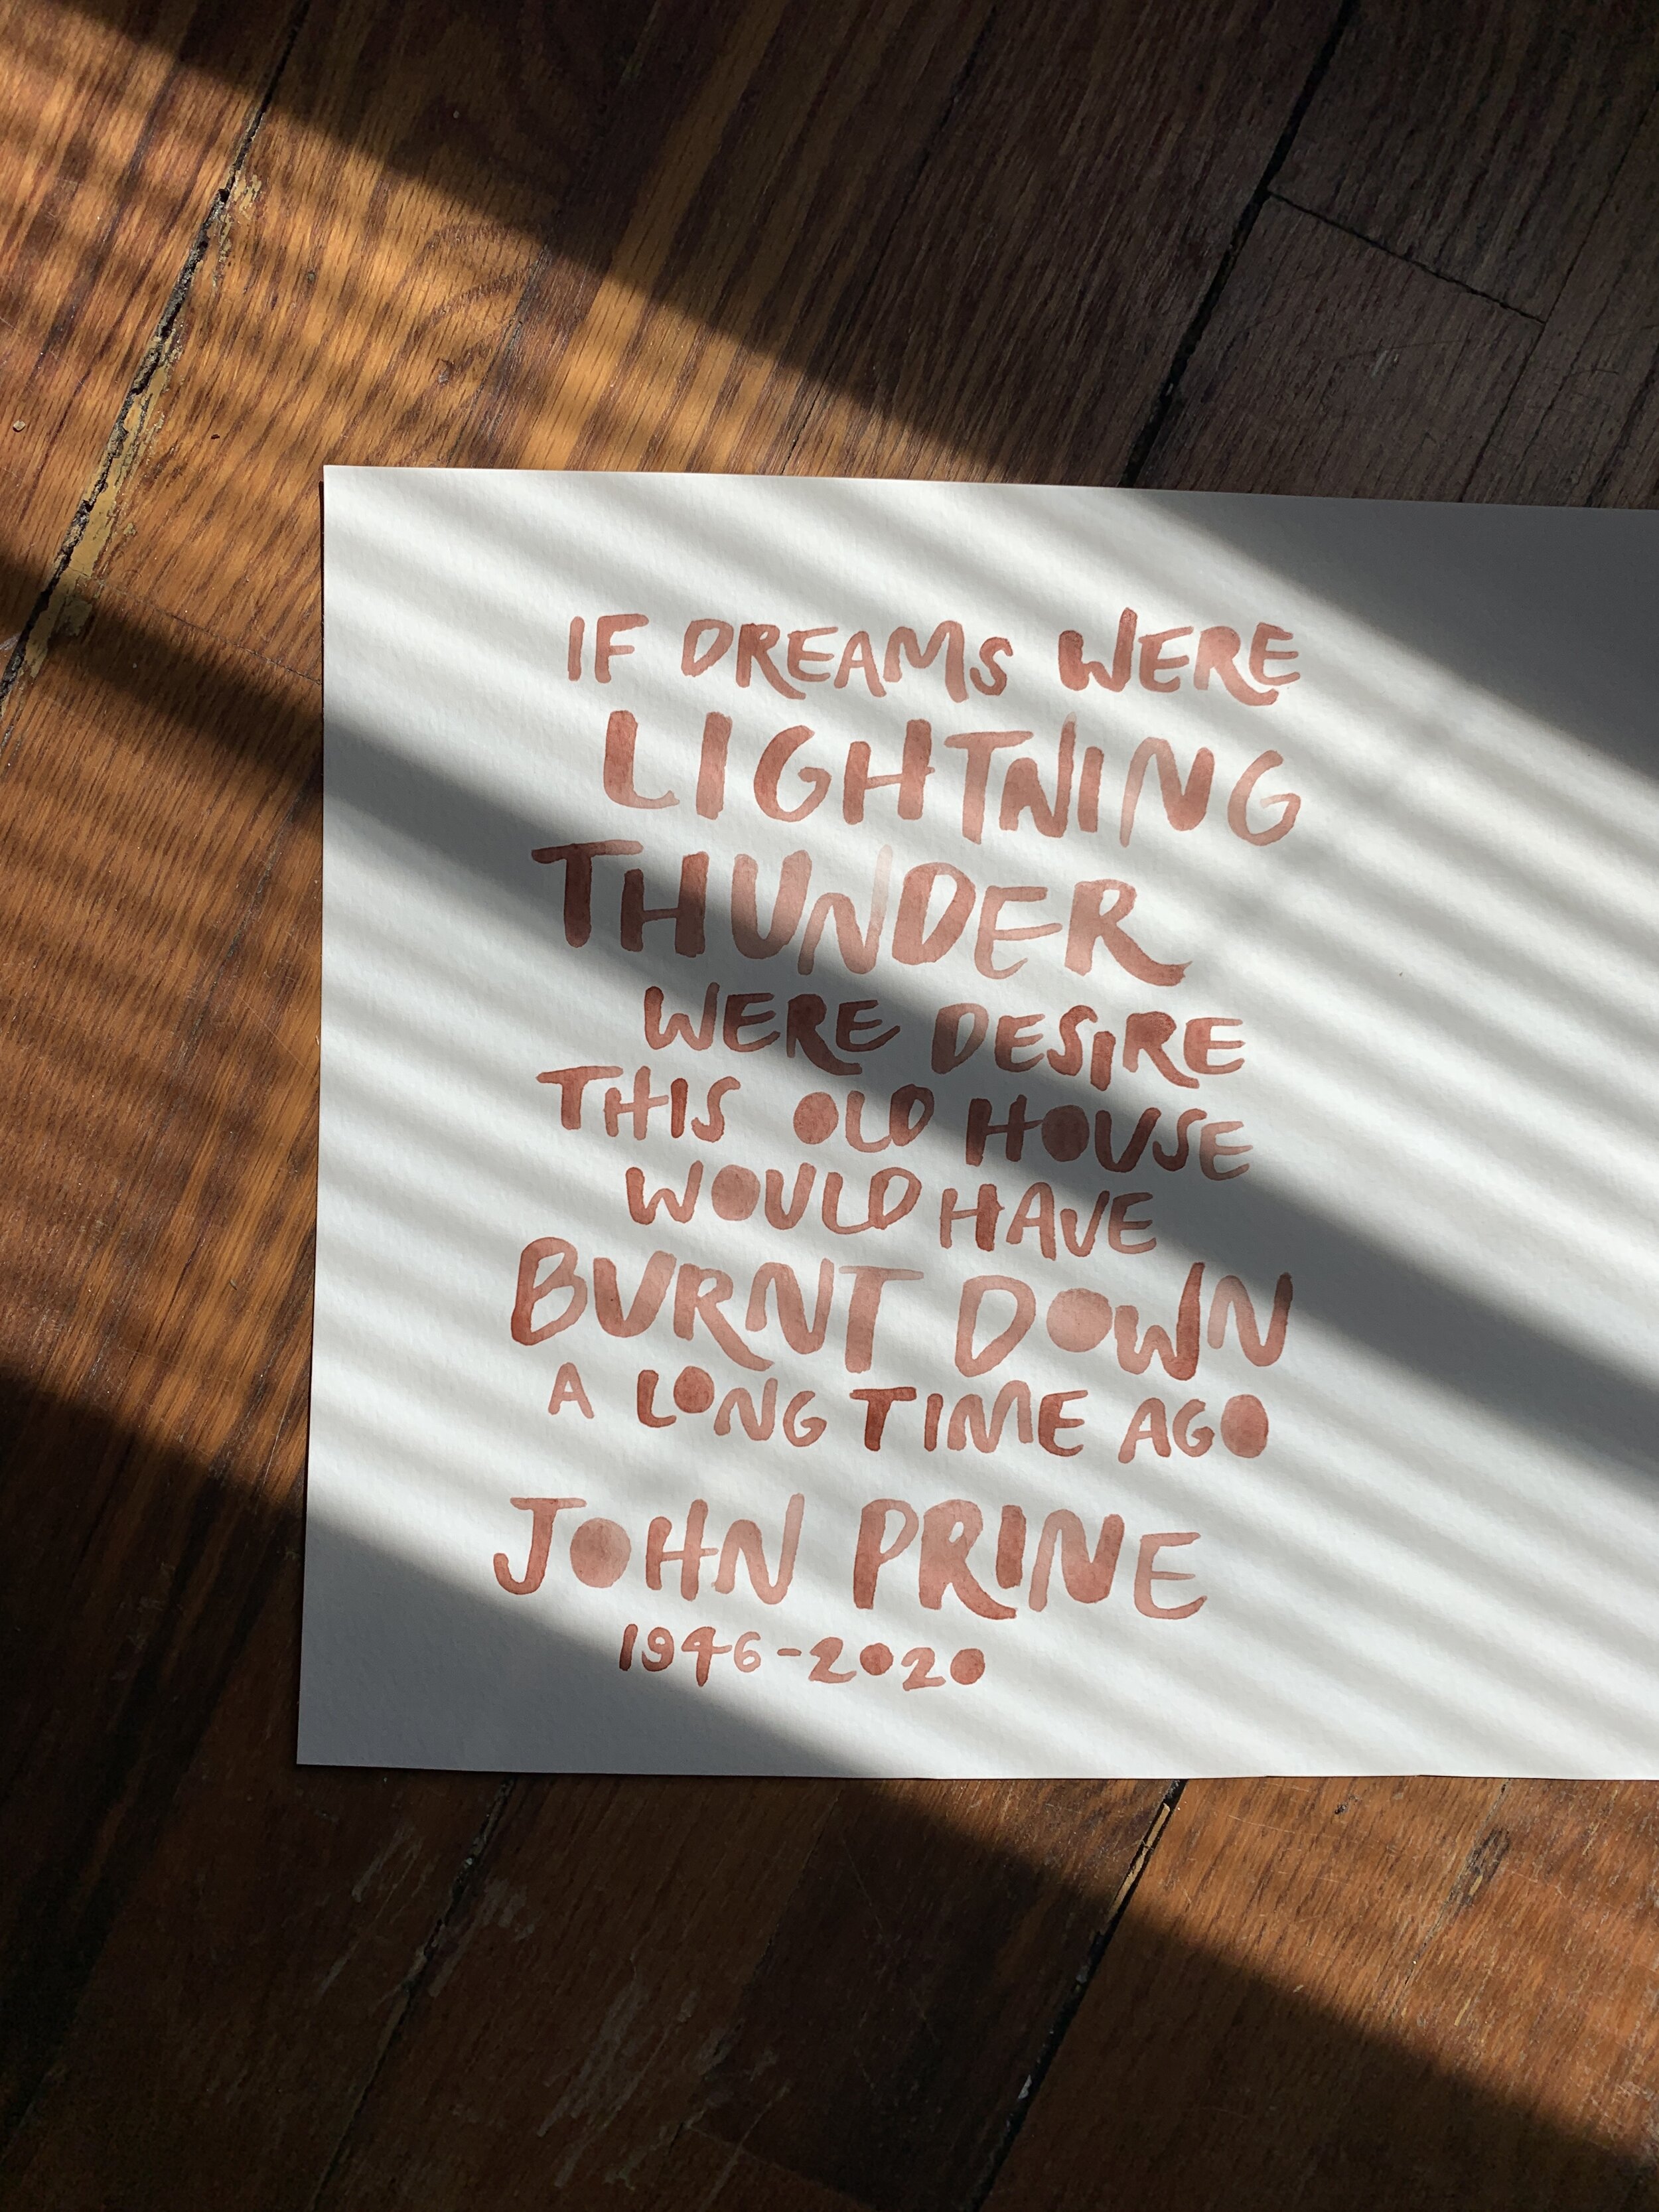 IF DREAMS WERE
LIGHTNING
THUNDER
WERE DESIRE
THIS OLD HOUSE
WOULD HAVE
BURNT DOWN
A LONG TIME AGO
JOHN PRINE
1946-2020